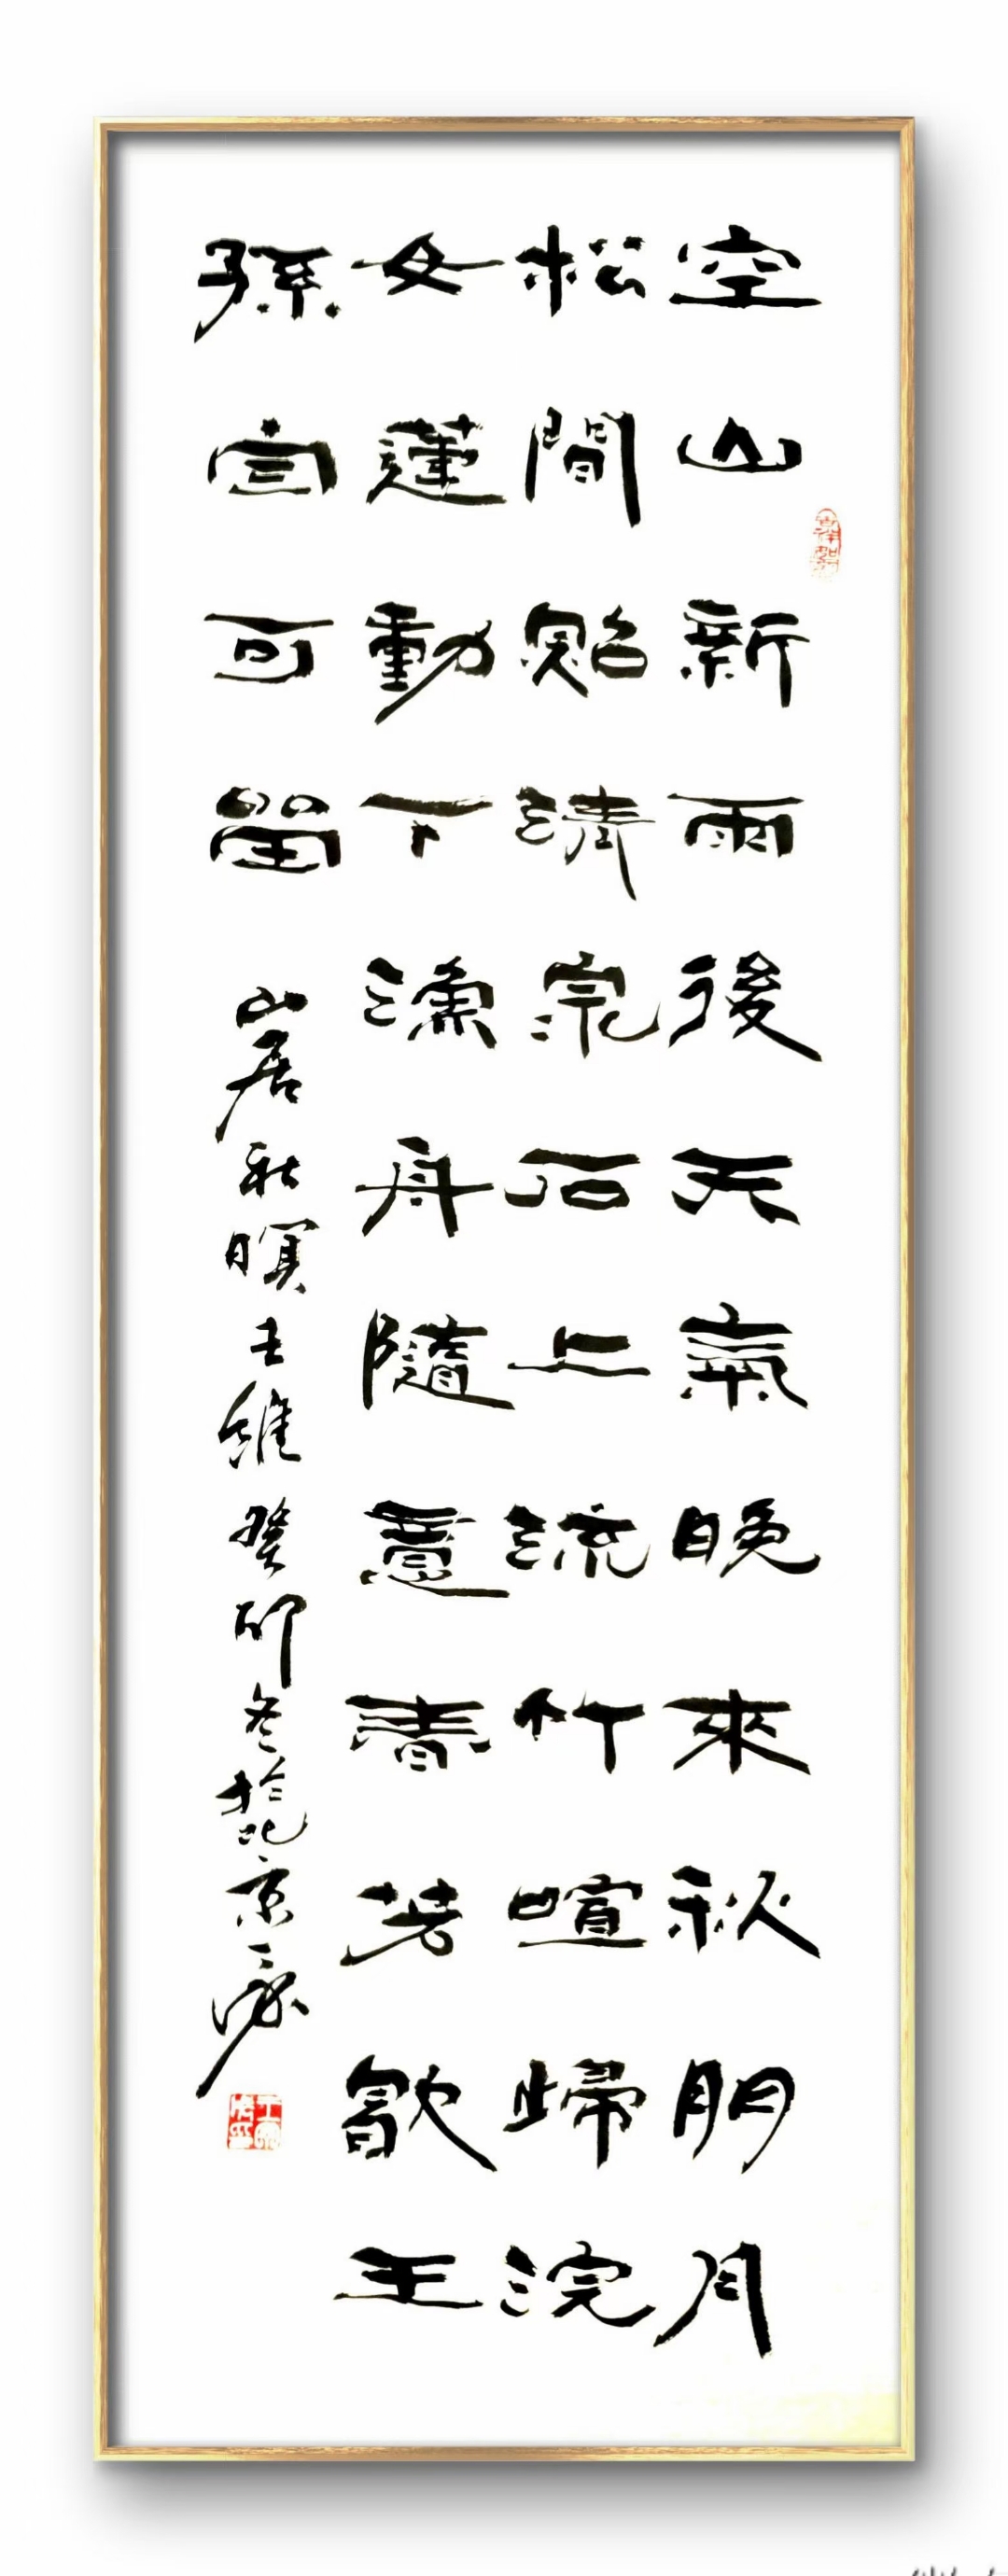 空山新雨後天氣晚來秋明月
松間照清泉石上流竹喧歸浣
女蓮動下漁舟隨意春芳歇王
孫自可留 山居秋暝 王維 癸卯冬於北京